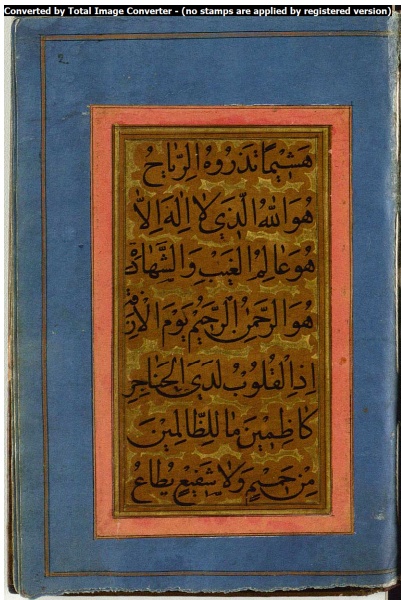 Converted by Total Image Converter - (no stamps are applied by registered version)
2
هَشِيمًا تَذْرُوهُ الرِّيَاحُ
هُوَ اللهُ الَّذِي لَا إِلَهَ إِلَّا
هُوَ عَالِمُ الْغَيْبِ وَالشَّهَادَة
هُوَ الرَّحْمنُ الرَّحِيمُ يَوْمَ الْآزِفَة
إِذِ الْقُلُوبُ لَدَى الْحَنَاجِرِ
كَاظِمِينَ مَا لِلظَّالِمِينَ
مِنْ حَمِيمٍ وَلَا شَفِيعٍ يُطَاعُ